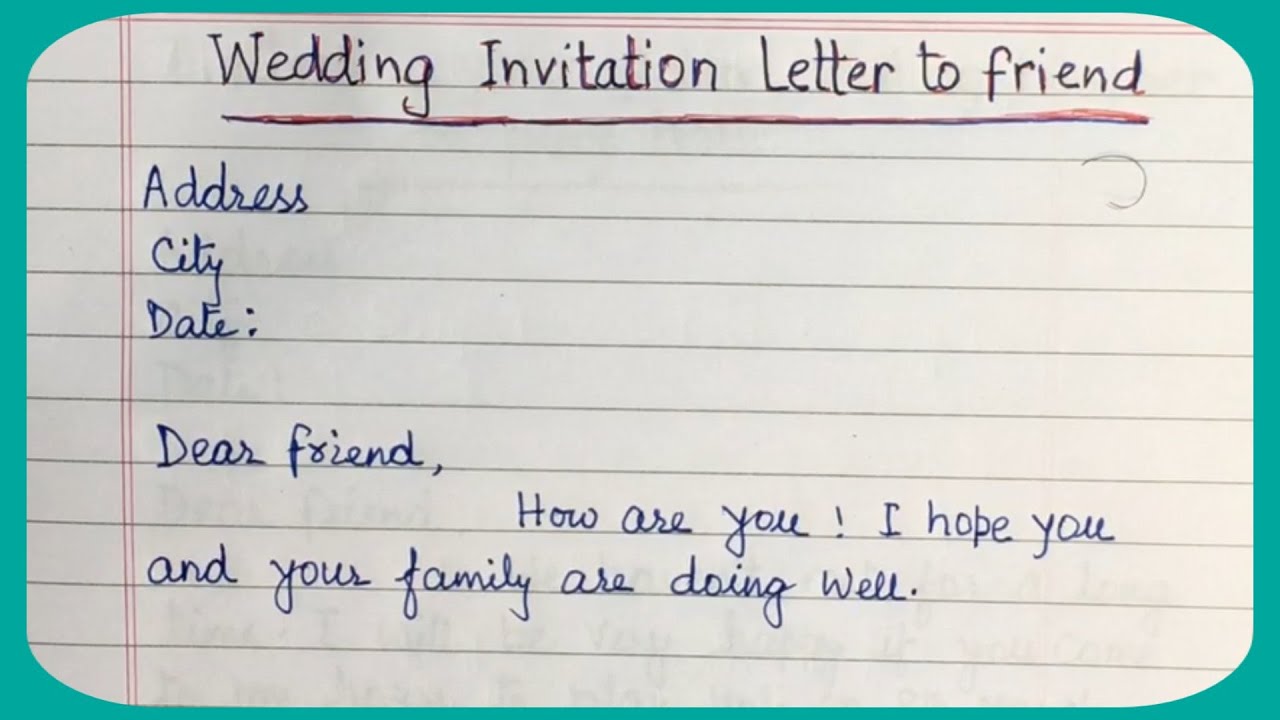 Wedding Invitation Letter to friend
Address
City
Date:
Dear friend,
How are you! I hope you
and your family are doing well.